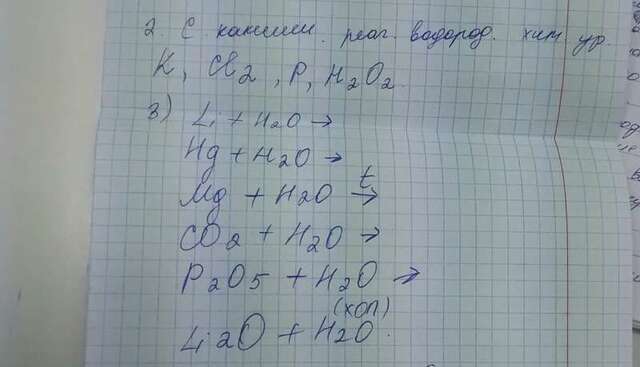 2. С какими реаг. водород. хим ур.
K, Cl2, P, H2O2
3) Li + H2O →
Hg + H2O →
Mg + H2O t→
CO2 + H2O →
P2O5 + H2O →
(хол)
Li2O + H2O.